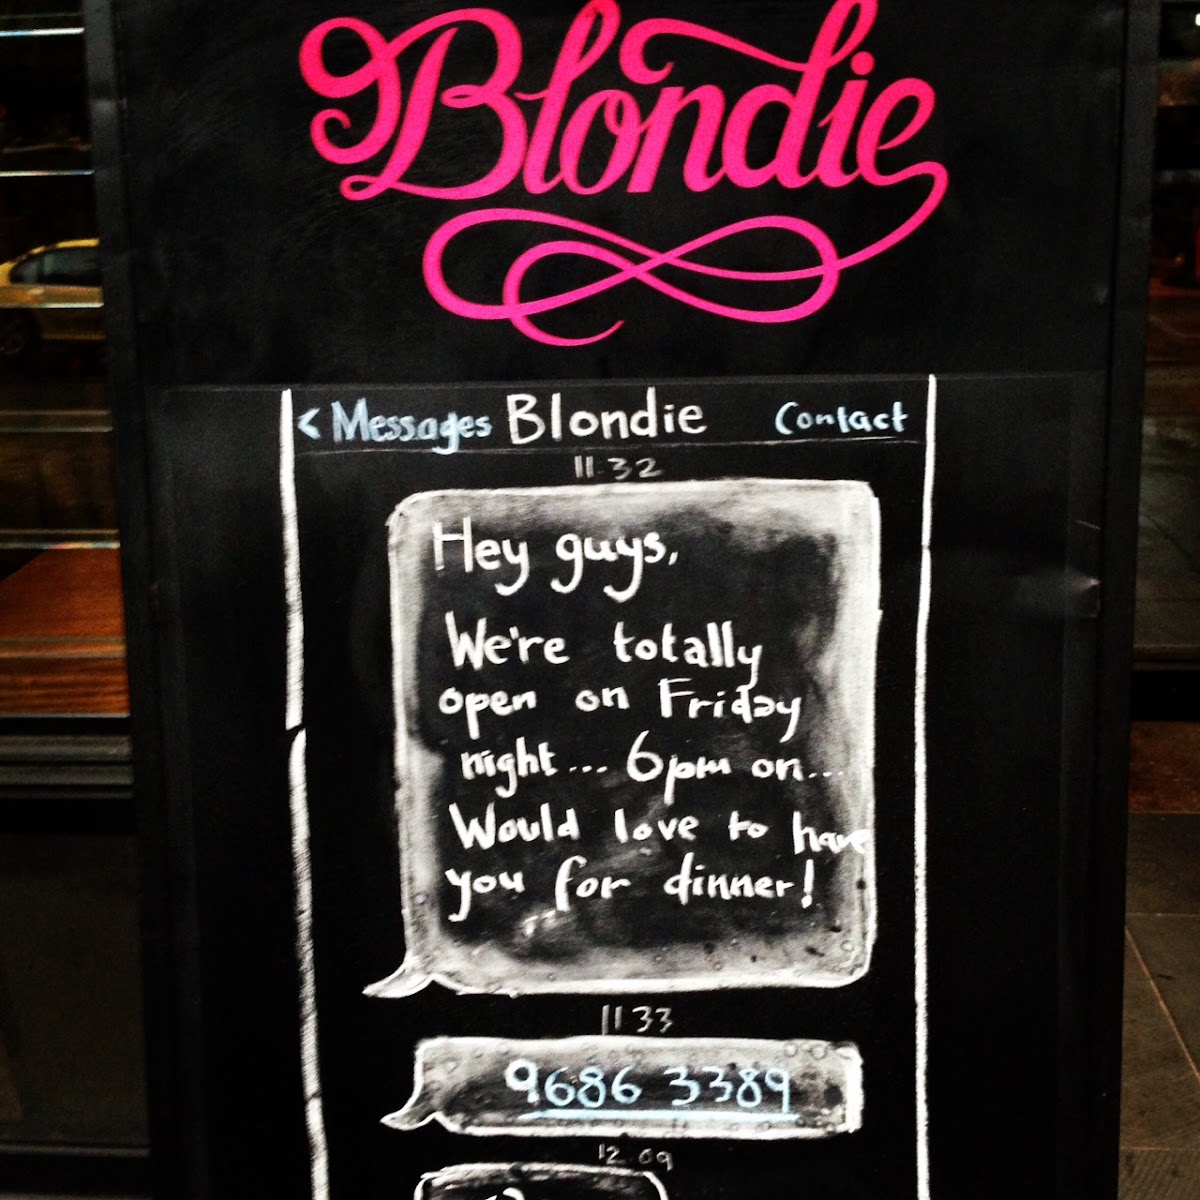 Blondie
< Messages Blondie Contact
11.32
Hey guys,
We're totally
open on Friday
night... 6pm on...
Would love to have
you for dinner!
11 33
9686 3389
12.09